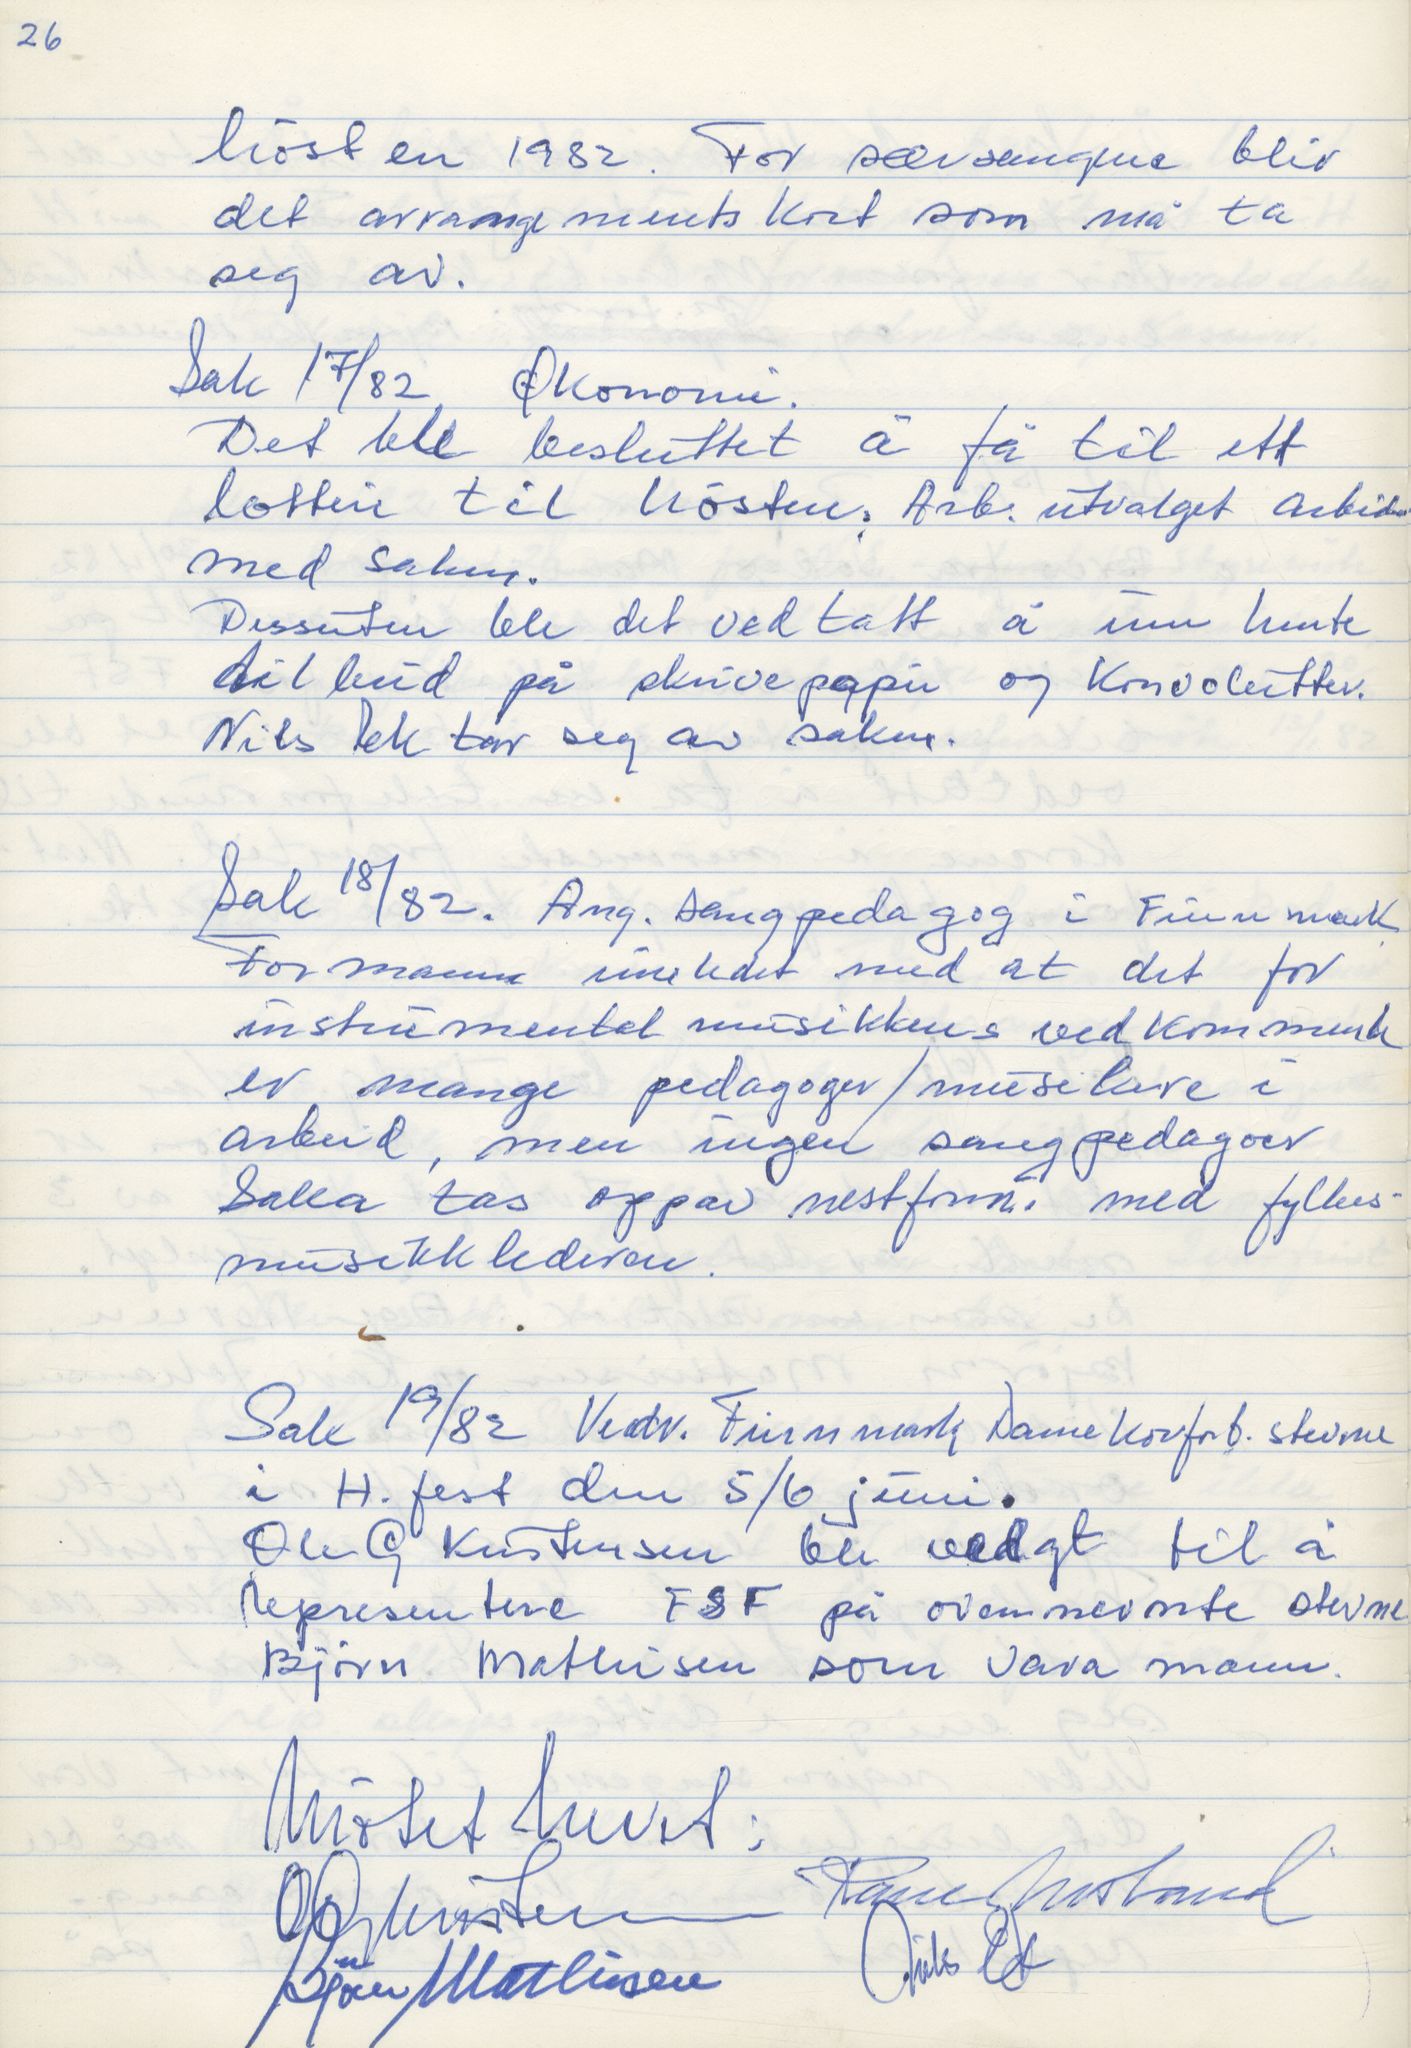 26
hösten 1982. For særsangene blir
det arrangementskort som må ta
seg av.
Sak 17/82 Økonomi.
Det ble besluttet å få til ett
lotteri til hösten; Arb. utvalget arbeider
med saken.
Dessuten ble det vedtatt å inn hente
tilbud på skrivepapir og Konvolutter.
Nils Eek tar seg av saken.
Sak 18/82. Ang. sangpedagog i Finnmark
Formann innledet med at det for
instrumental musikkens vedkommende
er mange pedagoger/musikere i
arbeid, men ingen sangpedagoer
Saka tas oppav nestform. med fylkes-
musikklederen.
Sak 19/82 Vedr. Finnmark Damekorforb. stevne
i H.fest den 5/6 juni.
Ole G Kristensen ble valgt til å
representere FSF på ovennevnte stevne
Björn Mathisen som vara mann.
Mötet hevet:
Björn Mathisen
Nils